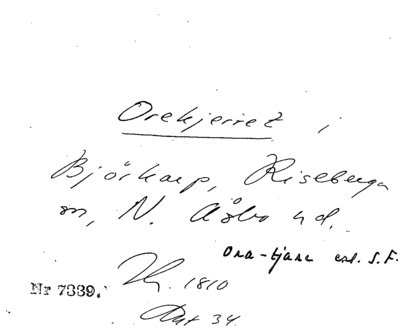 Orekjerret i
Björkarp, Riseberga
sn, N. Åsbo hd.
Ora-kjärr enl. S.F.
Nr 7339. Hy. 1810
Akt 34